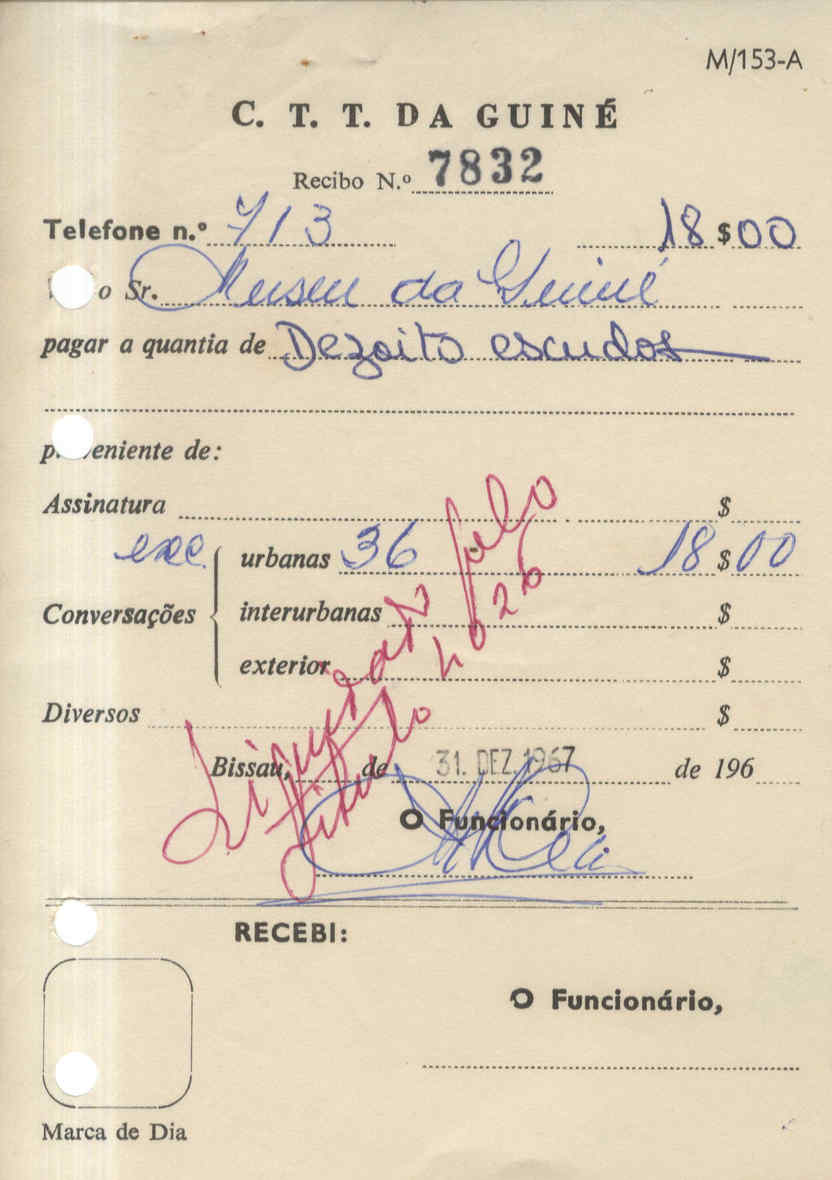 M/153-A
C. T. T. DA GUINÉ
Recibo N.º 7832
Telefone n.º 713 18$00
o Sr. Museu da Guiné
pagar a quantia de Dezoito escudos
p veniente de:
Assinatura $
exc. urbanas 36 18$00
Conversações interurbanas $
exterior $
Diversos $
Liquidado pelo
título 4026
Bissau, de 31. DEZ. 1967 de 196
O Funcionário,
RECEBI:
O Funcionário,
Marca de Dia